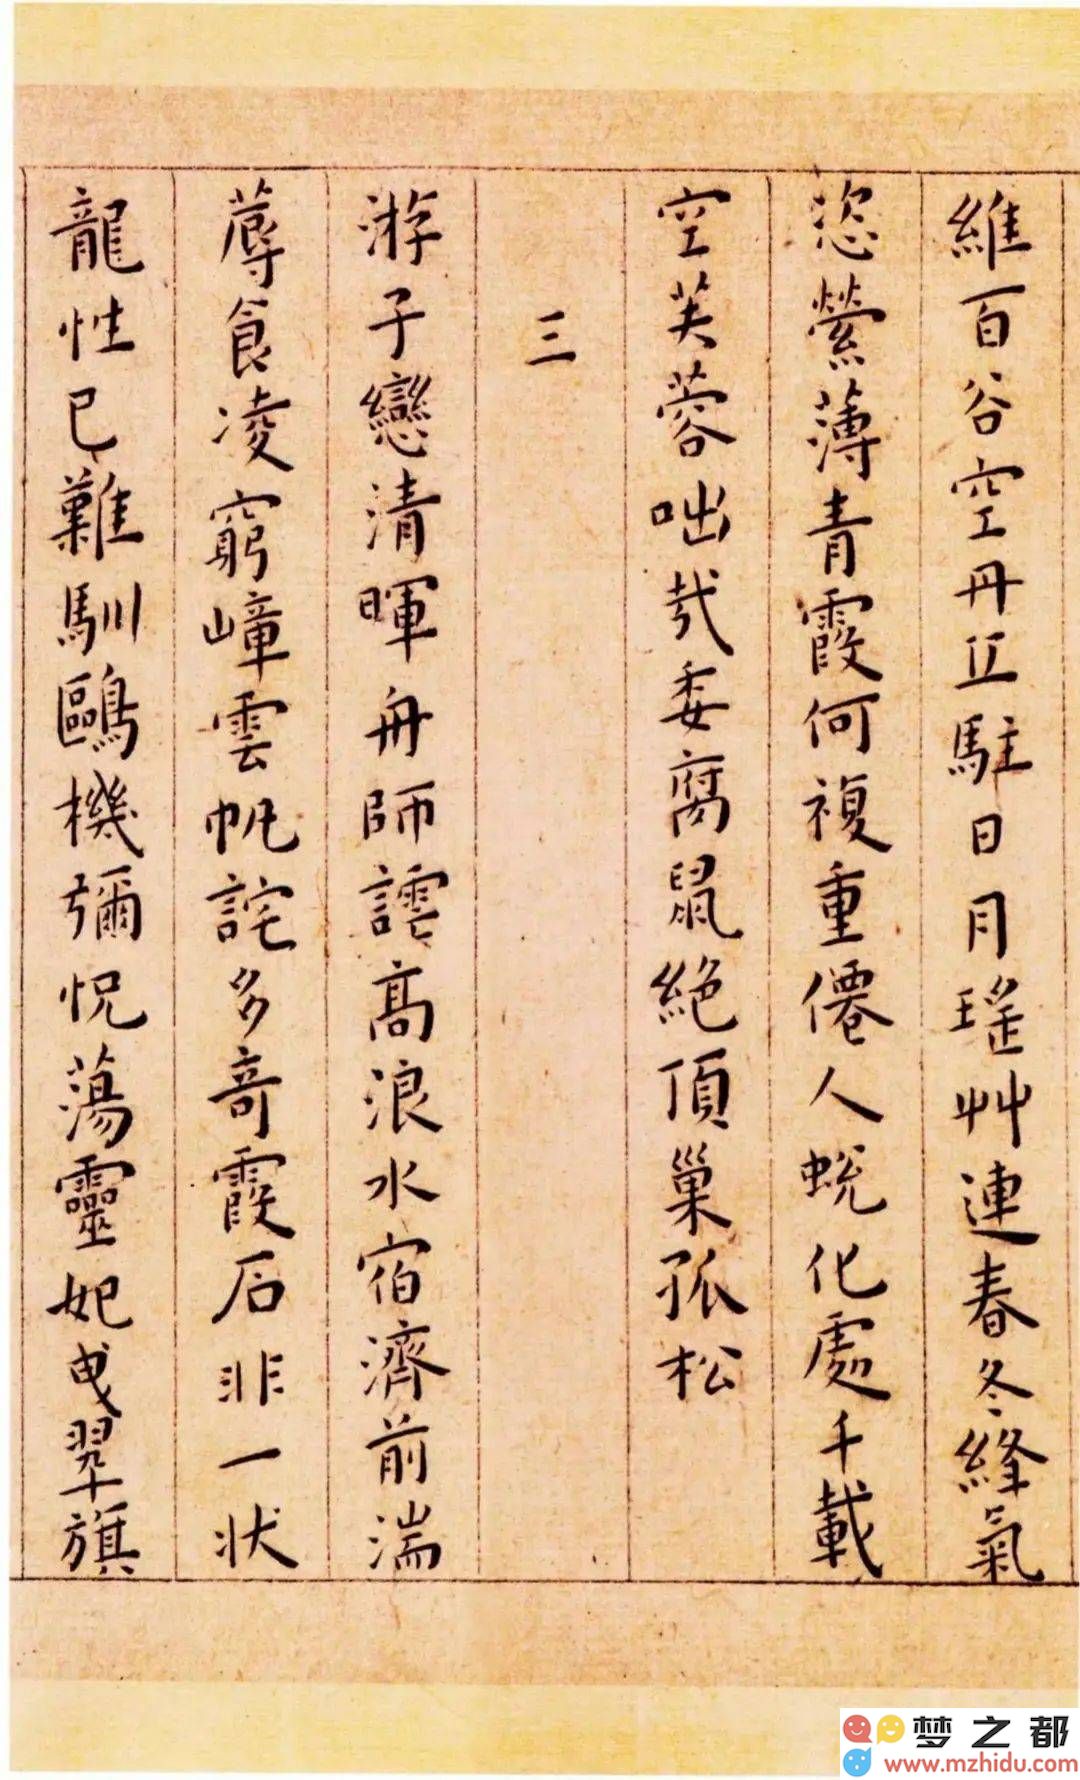 維百谷空丹丘駐日月瑤艸連春冬絳氣
恣縈薄青霞何複重僊人蛻化處千載
空芙蓉咄哉委腐鼠絶頂巢孤松
三
游子戀清暉舟師譁高浪水宿濟前湍
蓐食凌窮嶂雲帆詫多奇霞石非一状
龍性已難馴鷗機彌怳蕩靈妃曳翠旗
梦之都
www.mzhidu.com